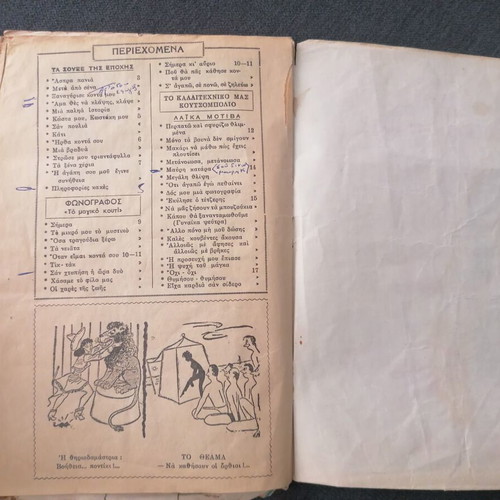 ΠΕΡΙΕΧΟΜΕΝΑ
ΤΑ ΣΟΥΞΕ ΤΗΣ ΕΠΟΧΗΣ
Ἄσπρα πανιά 5
Μετὰ ἀπὸ σένα »
Ξαναγύρισε κοντά μου »
Ἅμα θὲς νὰ κλάψῃς, κλάψε »
Μιὰ παλιὰ ἱστορία »
Κώστα μου, Κωστάκη μου
Σὰν πουλιὰ
Κάτι »
Ἦρθα κοντά σου 6
Μιὰ βραδυὰ »
Στρῶσε μου τριαντάφυλλα »
Τὰ ξένα χέρια 7
Ἡ ἀγάπη σου μοῦ ἔγινε
συνήθεια »
Πληροφορίες κακές »
ΦΩΝΟΓΡΑΦΟΣ
«Τὸ μαγικὸ κουτί»
Σήμερα 5
Τὸ μικρό μου τὸ μυστικὸ »
Ὅσα τραγούδια ξέρω »
Τὰ νειᾶτα »
Ὅταν εἶμαι κοντά σου 10—11
Τίκ-τὰκ »
Σὰν χτυπήσῃ ἡ ὥρα δυὸ »
Χάσαμε τὸ φίλο μας »
Οἱ χαρὲς τῆς ζωῆς »
Σήμερα κι' αὔριο 10—11
Ποῦ θὰ πᾷς κάθησε κον-
τά μου »
Σ' ἀγαπῶ, σὲ πονῶ, σὲ ζηλεύω »
ΤΟ ΚΑΛΛΙΤΕΧΝΙΚΟ ΜΑΣ
ΚΟΥΤΣΟΜΠΟΛΙΟ
ΛΑΪΚΑ ΜΟΤΙΒΑ
Περπατῶ καὶ σφυρίζω θλιμ-
μένα 12
Μόνο τὰ βουνὰ δὲν σμίγουν »
Μακάρι νὰ μάθω πὼς ἔχεις
πλουτίσει »
Μετάνοιωσα, μετάνοιωσα »
Μαύρη κατάρα 14
Μεγάλη θλίψη »
Ὅτι ἀγαπῶ ἐγὼ πεθαίνει »
Δός μου μιὰ φωτογραφία »
Ἐκύλησε ὁ τέντζερης »
Νὰ μᾶς ζήσουν τὰ μπουζούκια »
Κάπου θὰ ξανανταμωθοῦμε
(Γυναίκα ψεύτρα) »
Ἄλλο πόνο μὴ μοῦ δώσῃς »
Καλὲς κουβέντες ἄκουσα »
Ἀλλοιῶς μὲ ἄφησες καὶ
ἀλλοιῶς μὲ βρῆκες »
Ἡ προσευχή μου ἔπιασε »
Ἡ ψυχὴ τοῦ μάγκα »
Ὄχι - ὄχι 17
Θυμήσου - θυμήσου »
Εἶχα καρδιὰ σὰν σίδερο »
Ἡ θηριοδαμάστρια :
Βοήθεια... ποντίκι !...
ΤΟ ΘΕΑΜΑ
— Νὰ καθήσουν οἱ ὄρθιοι !...